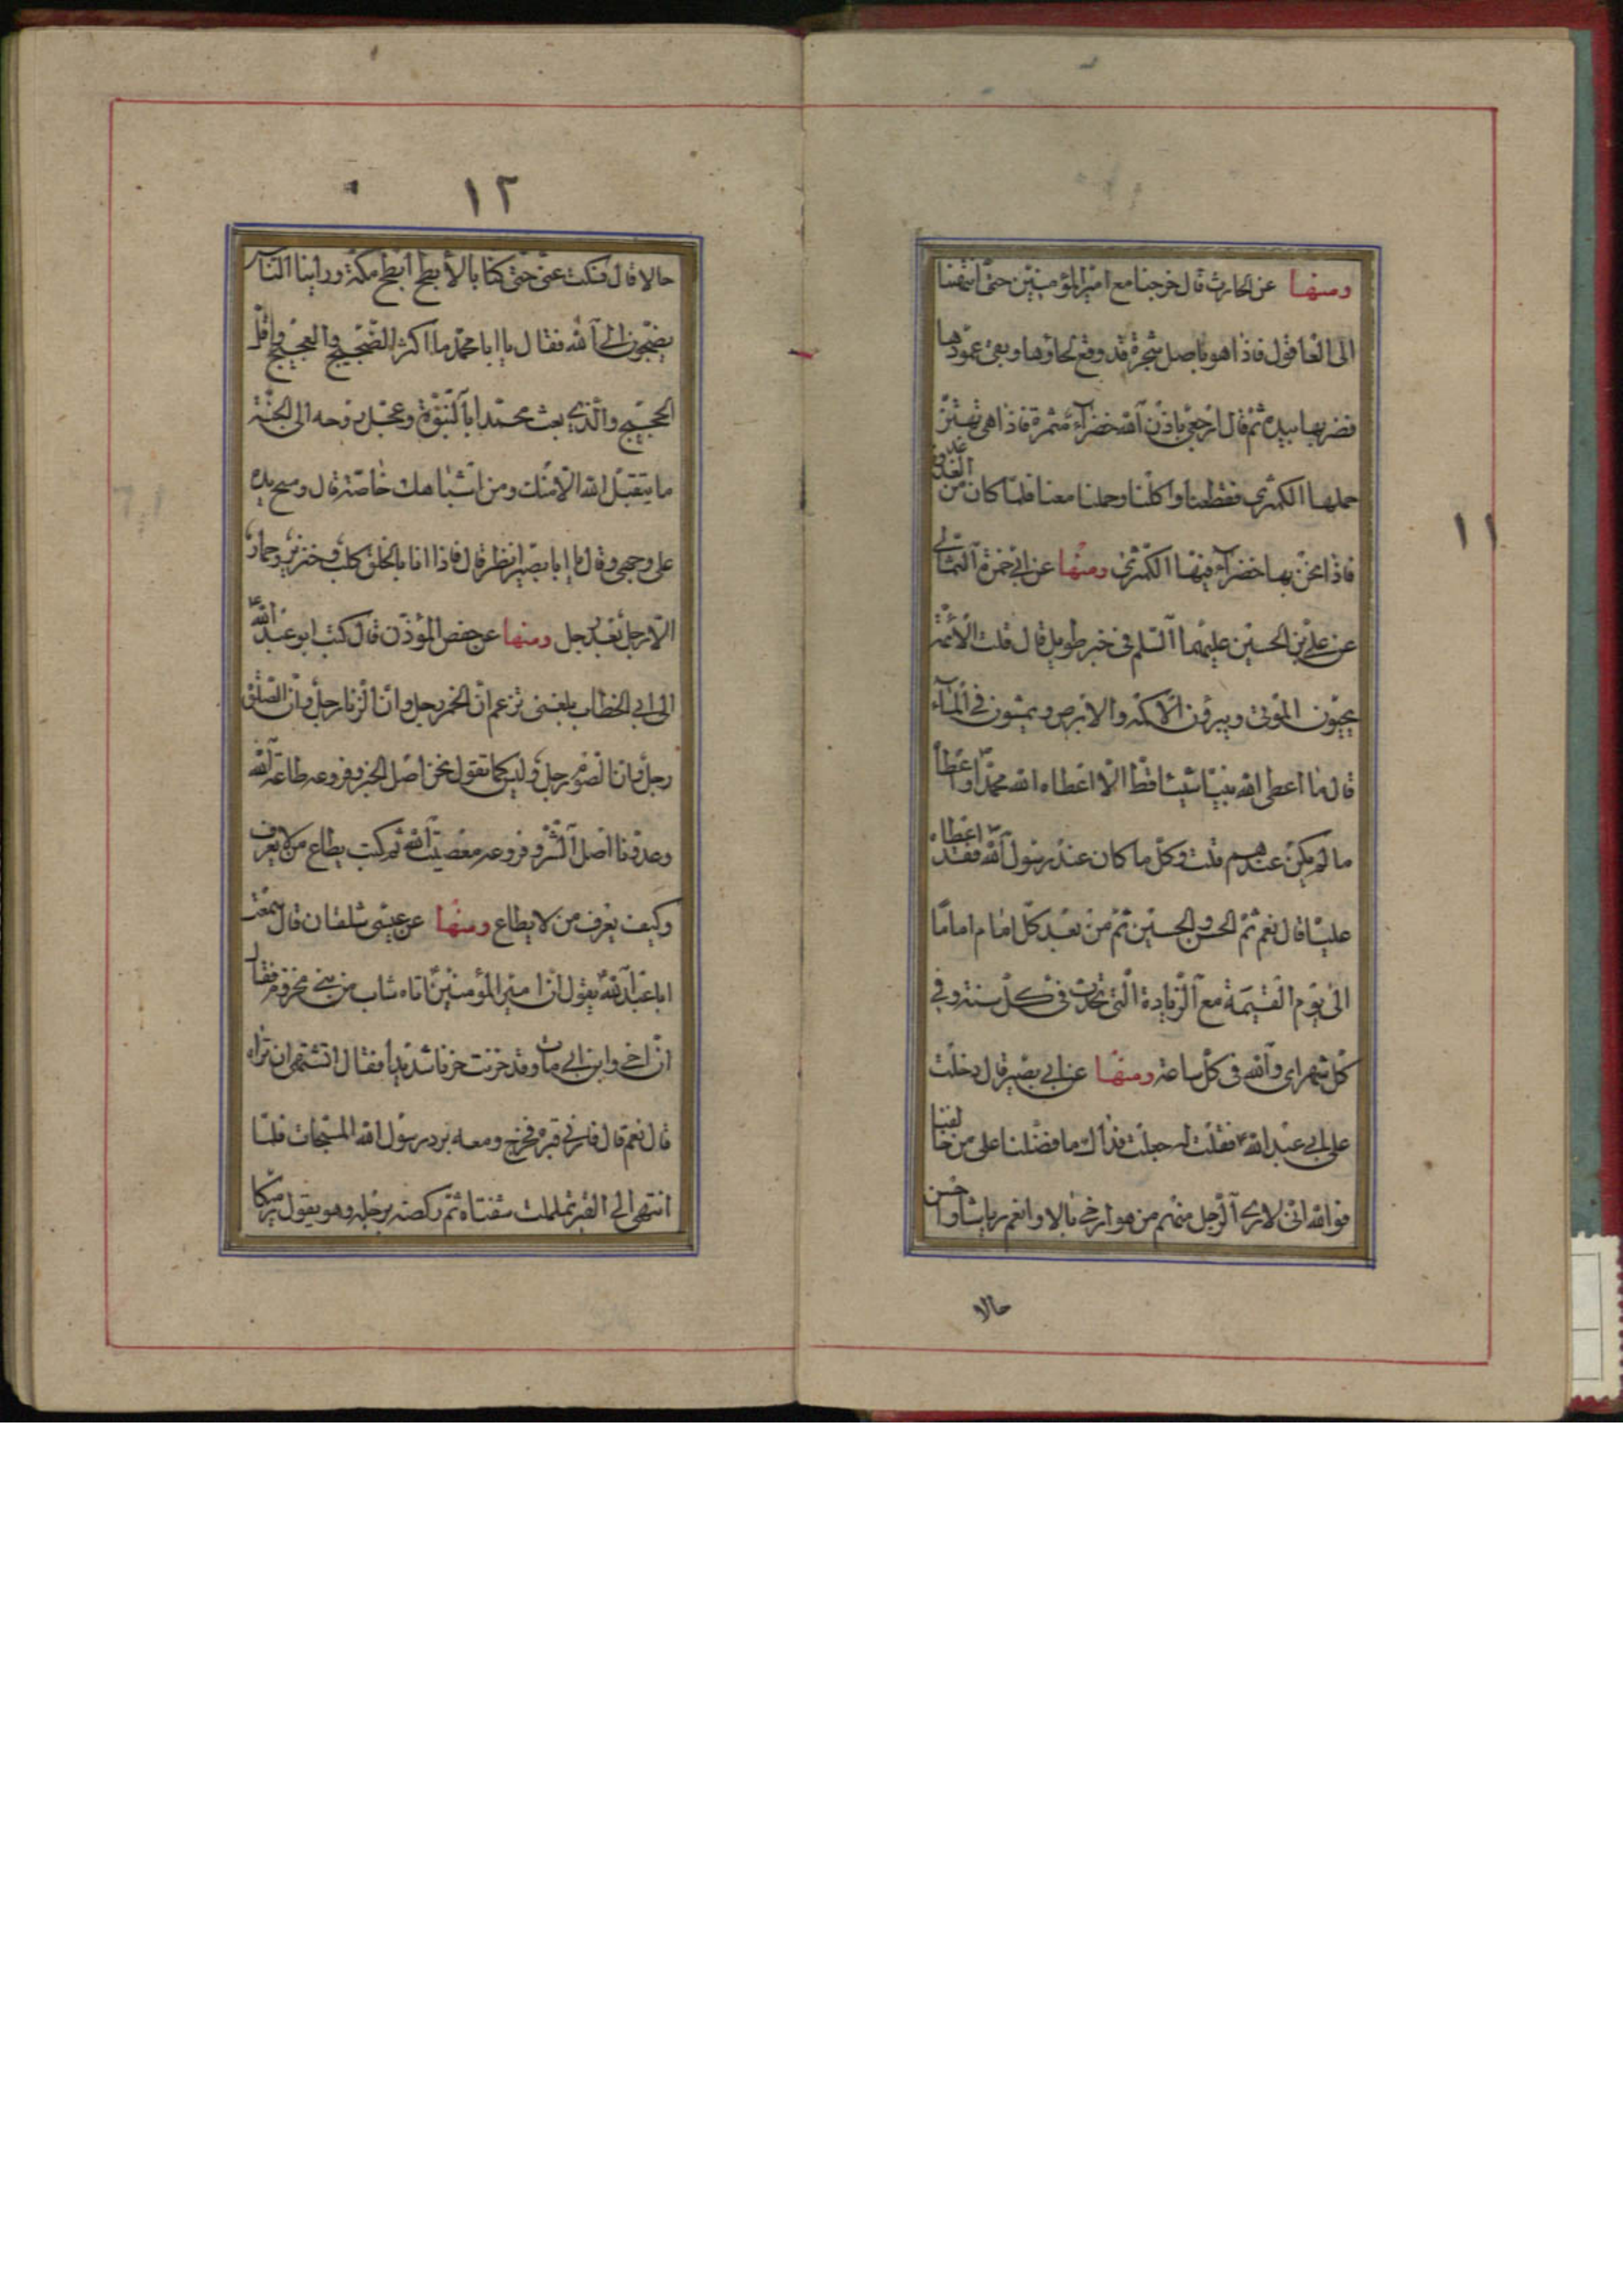 ١١
ومنها عن الحارث قال خرجنا مع امير المؤمنين حتى انتهينا
الى العاقول فاذا هو باصل شجرة قد وقع لحاؤها وبقى عمودها
فضربها بيده ثم قال ارجعى باذن الله خضراء مثمرة فاذا هى تهتز
حملها الكمثرى فقطعنا واكلنا وحملنا معنا فلما كان من الغد
فاذا نحن بها خضراء فيها الكمثرى ومنها عن ابى حمزة الثمالى
عن على بن الحسين عليهما السلم فى خبر طويل قال قلت الائمة
يحيون الموتى ويبرؤن الاكمه والابرص ويمشون فى الماء
قال ما اعطى الله نبيا شيئا قط الا اعطاه الله محمدا واعطا
ما لم يكن عندهم قلت وكل ما كان عند رسول الله فقد اعطاه
عليا قال نعم ثم الحسن والحسين ثم من بعد كل امام اماما
الى يوم القيمة مع الزيادة التى تحدث فى كل سنة وفى
كل شهر اى والله فى كل ساعة ومنها عن ابى بصير قال دخلت
على ابى عبد الله ع فقلت له جعلت فداك ما فضلنا على من خالفنا
فوالله انى لارى الرجل منهم من هو ارخى بالا وانعم رياشا واحسن
حالا
١٢
حالا قال فسكت عنى حتى كنا بالابطح ابطح مكة وراينا الناس
يضجون الى الله فقال يا ابا محمد ما اكثر الضجيج والعجيج واقل
الحجيج والذى بعث محمدا بالنبوة وعجل بروحه الى الجنة
ما يتقبل الله الا منك ومن اشباهك خاصة قال ومسح يده
على وجهى وقال يا ابا بصير انظر قال فاذا انا بالخلق كلب وخنزير وحمار
الا رجل بعد رجل ومنها عن حفص المؤذن قال كتب ابو عبد الله ع
الى ابى الخطاب بلغنى تزعم ان الخمر رجل وان الزنا رجل وان الصلوة
رجل وان الصوم رجل وليس كما تقول نحن اصل الخير وفروعه طاعة الله
وعدونا اصل الشر وفروعه معصية الله ثم كتب يطاع من لا يعرف
وكيف يعرف من لا يطاع ومنها عن عيسى شلقان قال سمعت
ابا عبد الله ع يقول ان امير المؤمنين اتاه شاب من بنى مخزوم فقال
ان اخى وابن ابى مات وقد حزنت حزنا شديدا فقال اتشتهى ان تراه
قال نعم قال فارنى قبره فخرج ومعه برد رسول الله المستجاب فلما
انتهى الى القبر تململت شفتاه ثم ركضه برجله وهو يقول